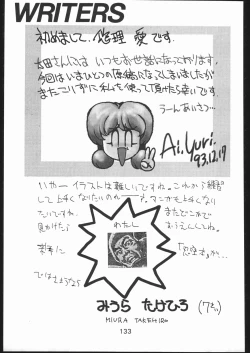 WRITERS
初めまして、修理 愛です。
太田さんには いつもお世話になっております。
今回はいまひとつの原稿になってしまいましたが
またこりずに私を使って頂けたら幸いです
うーんあいさつ…
Ai.Yuri.
93.12.17
いやー イラストは難しいですね。これから練習
して上手くなりたいので、マンガも上手くなり
たいですね。
またどこかで
見かけたら
おうえんしてね。
わたし
ではさようなら
みうら たけひろ
MIURA TAKEHIRO
133